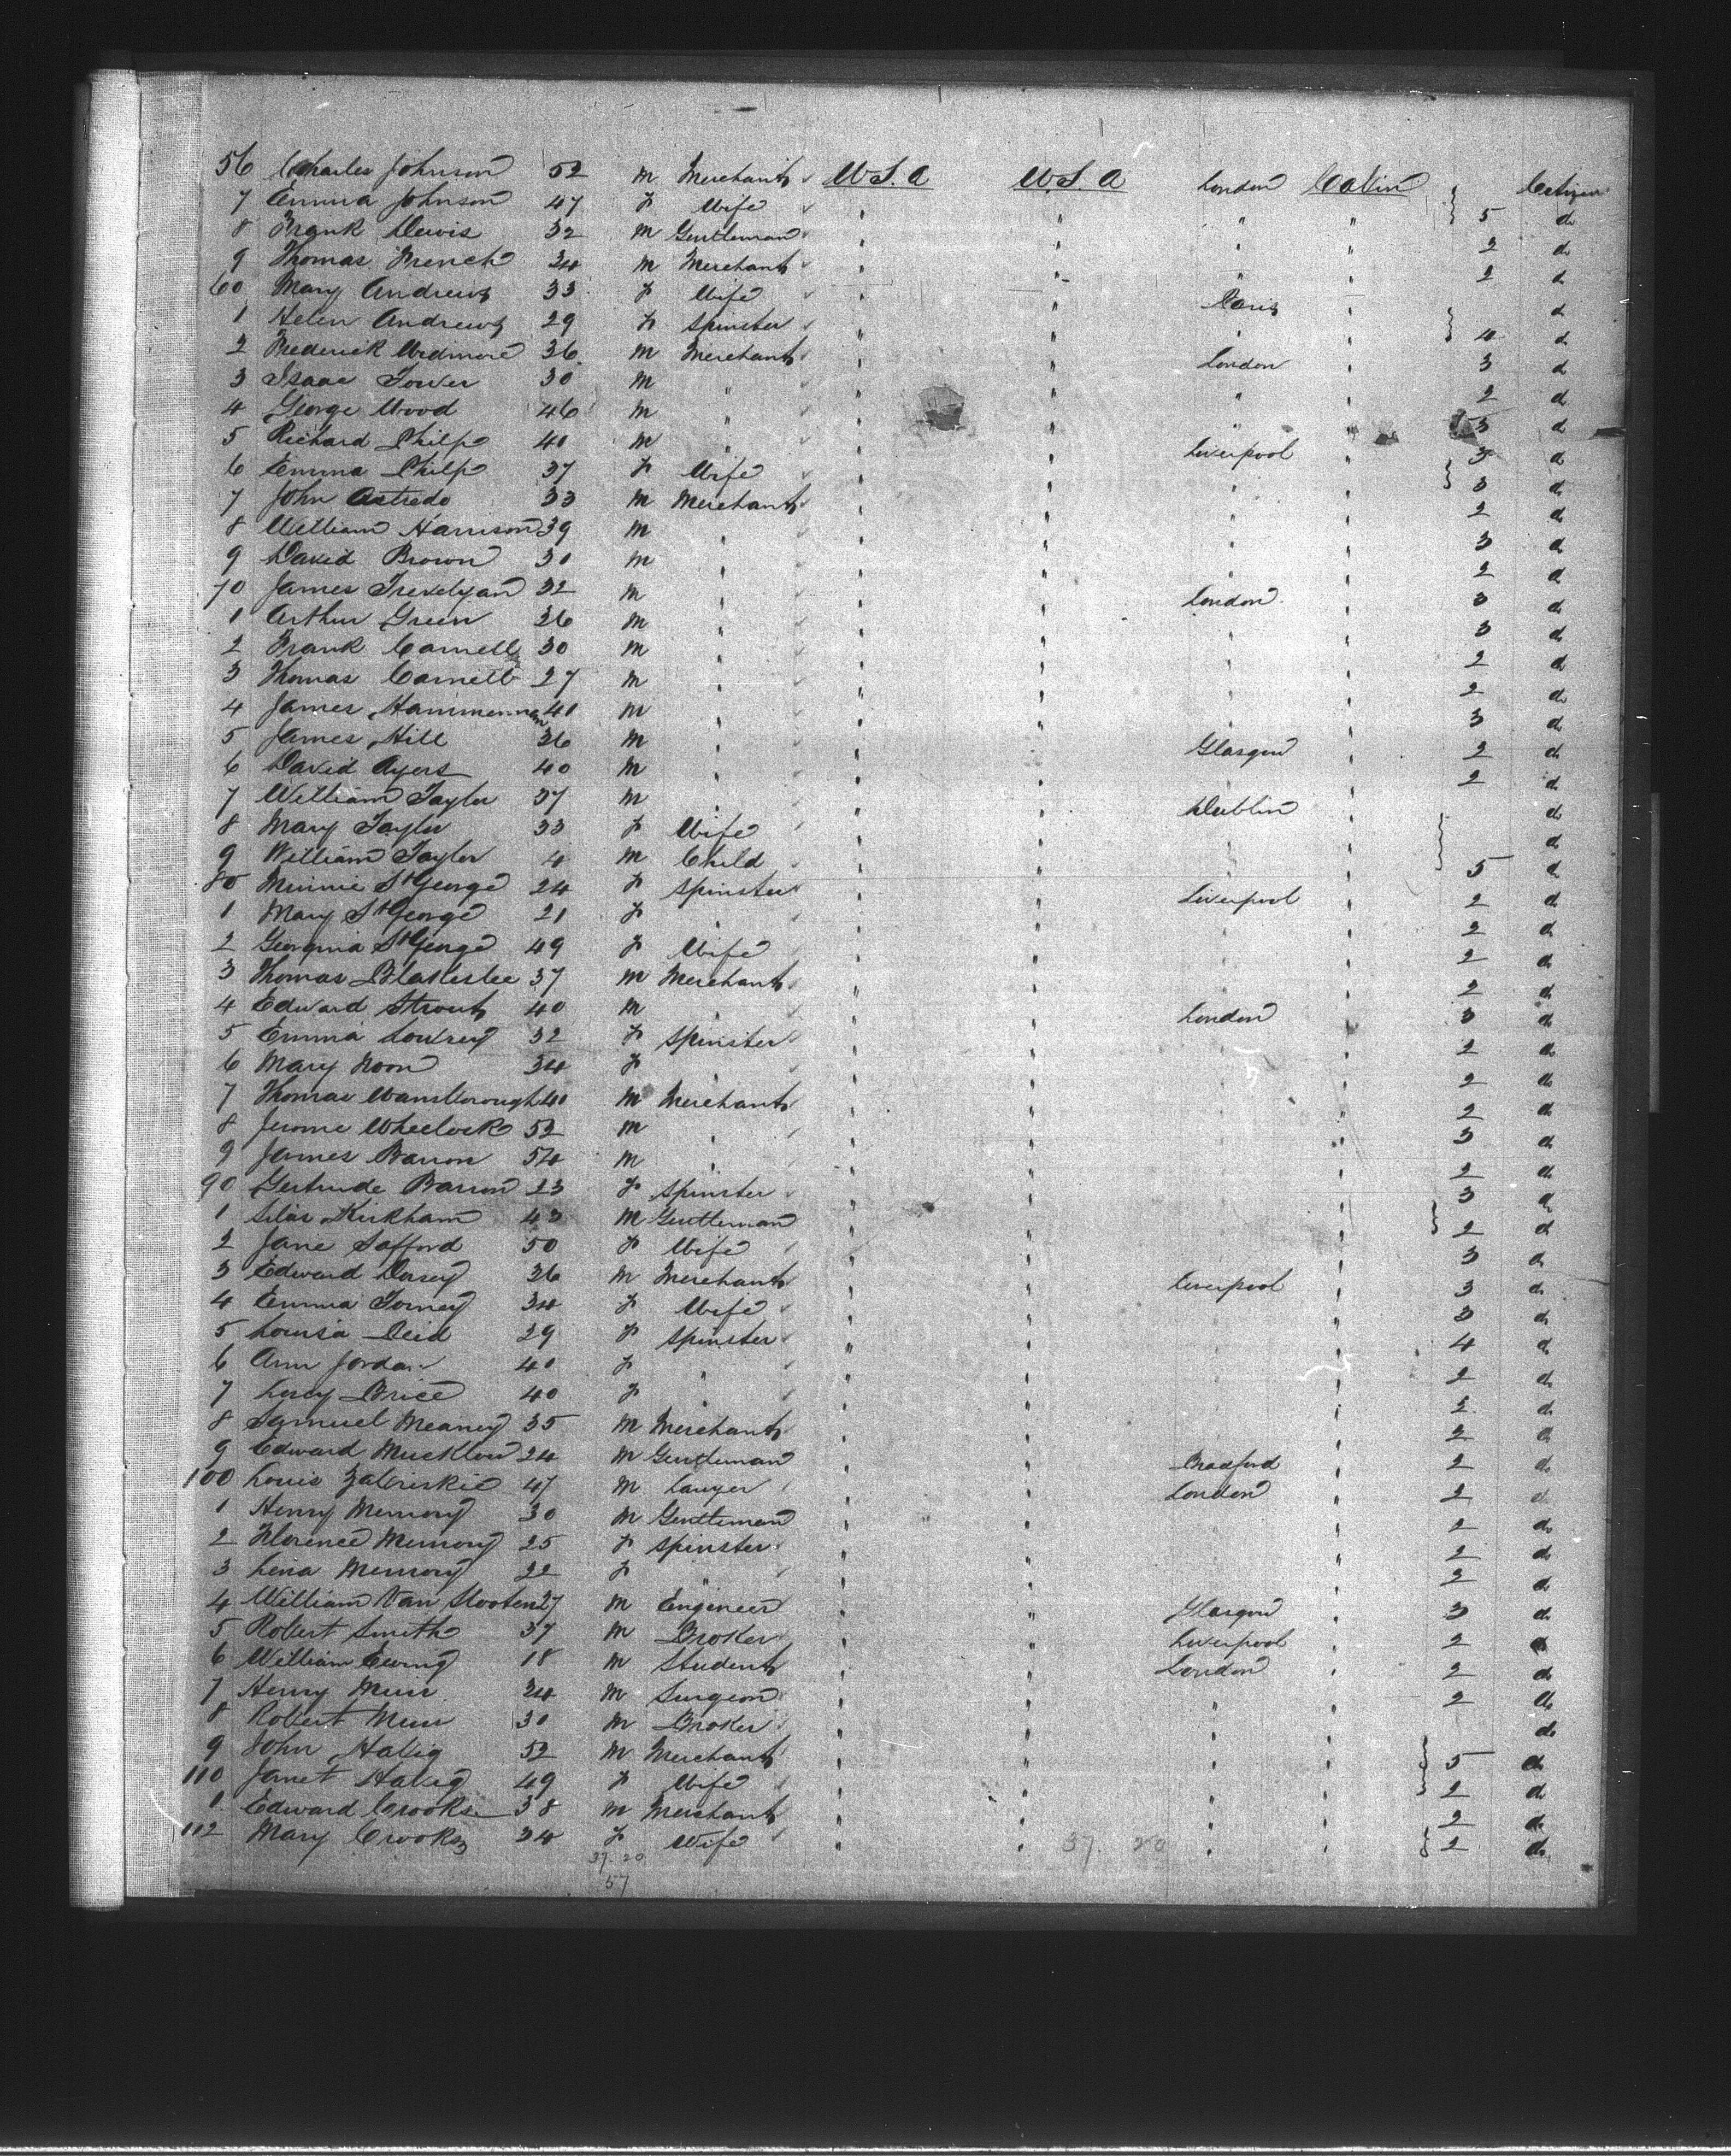 56 Charles Johnson 52 m Merchant U.S.A U.S.A London Cabin Citizen
7 Emma Johnson 47 f Wife " " " " } 5 do
8 Frank Lewis 32 m Gentleman " " " " 2 do
9 Thomas French 34 m Merchant " " " " 2 do
60 Mary Andrews 33 f Wife " " Paris " do
1 Helen Andrews 29 f Spinster " " " " } 4 do
2 Frederick Wedmore 36 m Merchant " " London " 3 do
3 Isaac Tower 30 m " " " " " 2 do
4 George Wood 46 m " " " " " 3 do
5 Richard Philp 40 m " " " Liverpool " 3 do
6 Emma Philp 37 f Wife " " " " } 3 do
7 John 33 m Merchant " " " " 2 do
8 William Harrison 39 m " " " " " 3 do
9 David Brown 30 m " " " " " 2 do
70 James Trevelyan 32 m " " " London " 3 do
1 Arthur Green 26 m " " " " " 3 do
2 Frank Carnell 30 m " " " " " 2 do
3 Thomas Carnell 27 m " " " " " 2 do
4 James Hammerman 40 m " " " " " 3 do
5 James Hill 36 m " " " Glasgow " 2 do
6 David Ayers 40 m " " " " 2 do
7 William Taylor 37 m " " " Dublin " do
8 Mary Taylor 33 f Wife " " " " do
9 William Taylor 4 m Child " " " " } 5 do
80 Minnie St George 24 f Spinster " " Liverpool " 2 do
1 Mary St George 21 f " " " " " 2 do
2 Georgina St George 49 f Wife " " " " 2 do
3 Thomas Blakeslee 37 m Merchant " " " " 2 do
4 Edward Strout 40 m " " " London " 3 do
5 Emma 32 f Spinster " " " " 2 do
6 Mary Noon 34 f " " " " " 2 do
7 Thomas Wansborough 40 m Merchant " " " " 2 do
8 Jerome Wheelock 52 m " " " " " 3 do
9 James Barron 54 m " " " " " 2 do
90 Gertrude Barron 23 f Spinster " " " " 3 do
1 Silas Kirkham 43 m Gentleman " " " " } 2 do
2 Jane Safford 50 f Wife " " " " 3 do
3 Edward Dorsey 36 m Merchant " " Liverpool " 3 do
4 Emma 34 f Wife " " " " 3 do
5 Louisa Reid 29 f Spinster " " " " 4 do
6 Ann Jordan 40 f " " " " " 2 do
7 Lucy Price 40 f " " " " " 2 do
8 Samuel Meaney 35 m Merchant " " " " 2 do
9 Edward Mucklow 24 m Gentleman " " Bradford " 2 do
100 Louis Zabriskie 47 m Lawyer " " London " 2 do
1 Henry Memory 30 m Gentleman " " " " 2 do
2 Florence Memory 25 f Spinster " " " " 2 do
3 Lena Memory 22 f " " " " " 2 do
4 William Van Slooten 27 m Engineer " " Glasgow " 3 do
5 Robert Smith 37 m Broker " " Liverpool " 2 do
6 William Ewing 18 m Student " " London " 2 do
7 Henry Muir 24 m Surgeon " " " " 2 do
8 Robert Muir 30 m Broker " " " " do
9 John Halig 52 m Merchant " " " " } 5 do
110 Janet Halig 49 f Wife " " " " 2 do
1 Edward Crooks 38 m Merchant " " " " 2 do
112 Mary Crooks 34 f Wife " " " " } 2 do
37. 20 37. 20
57